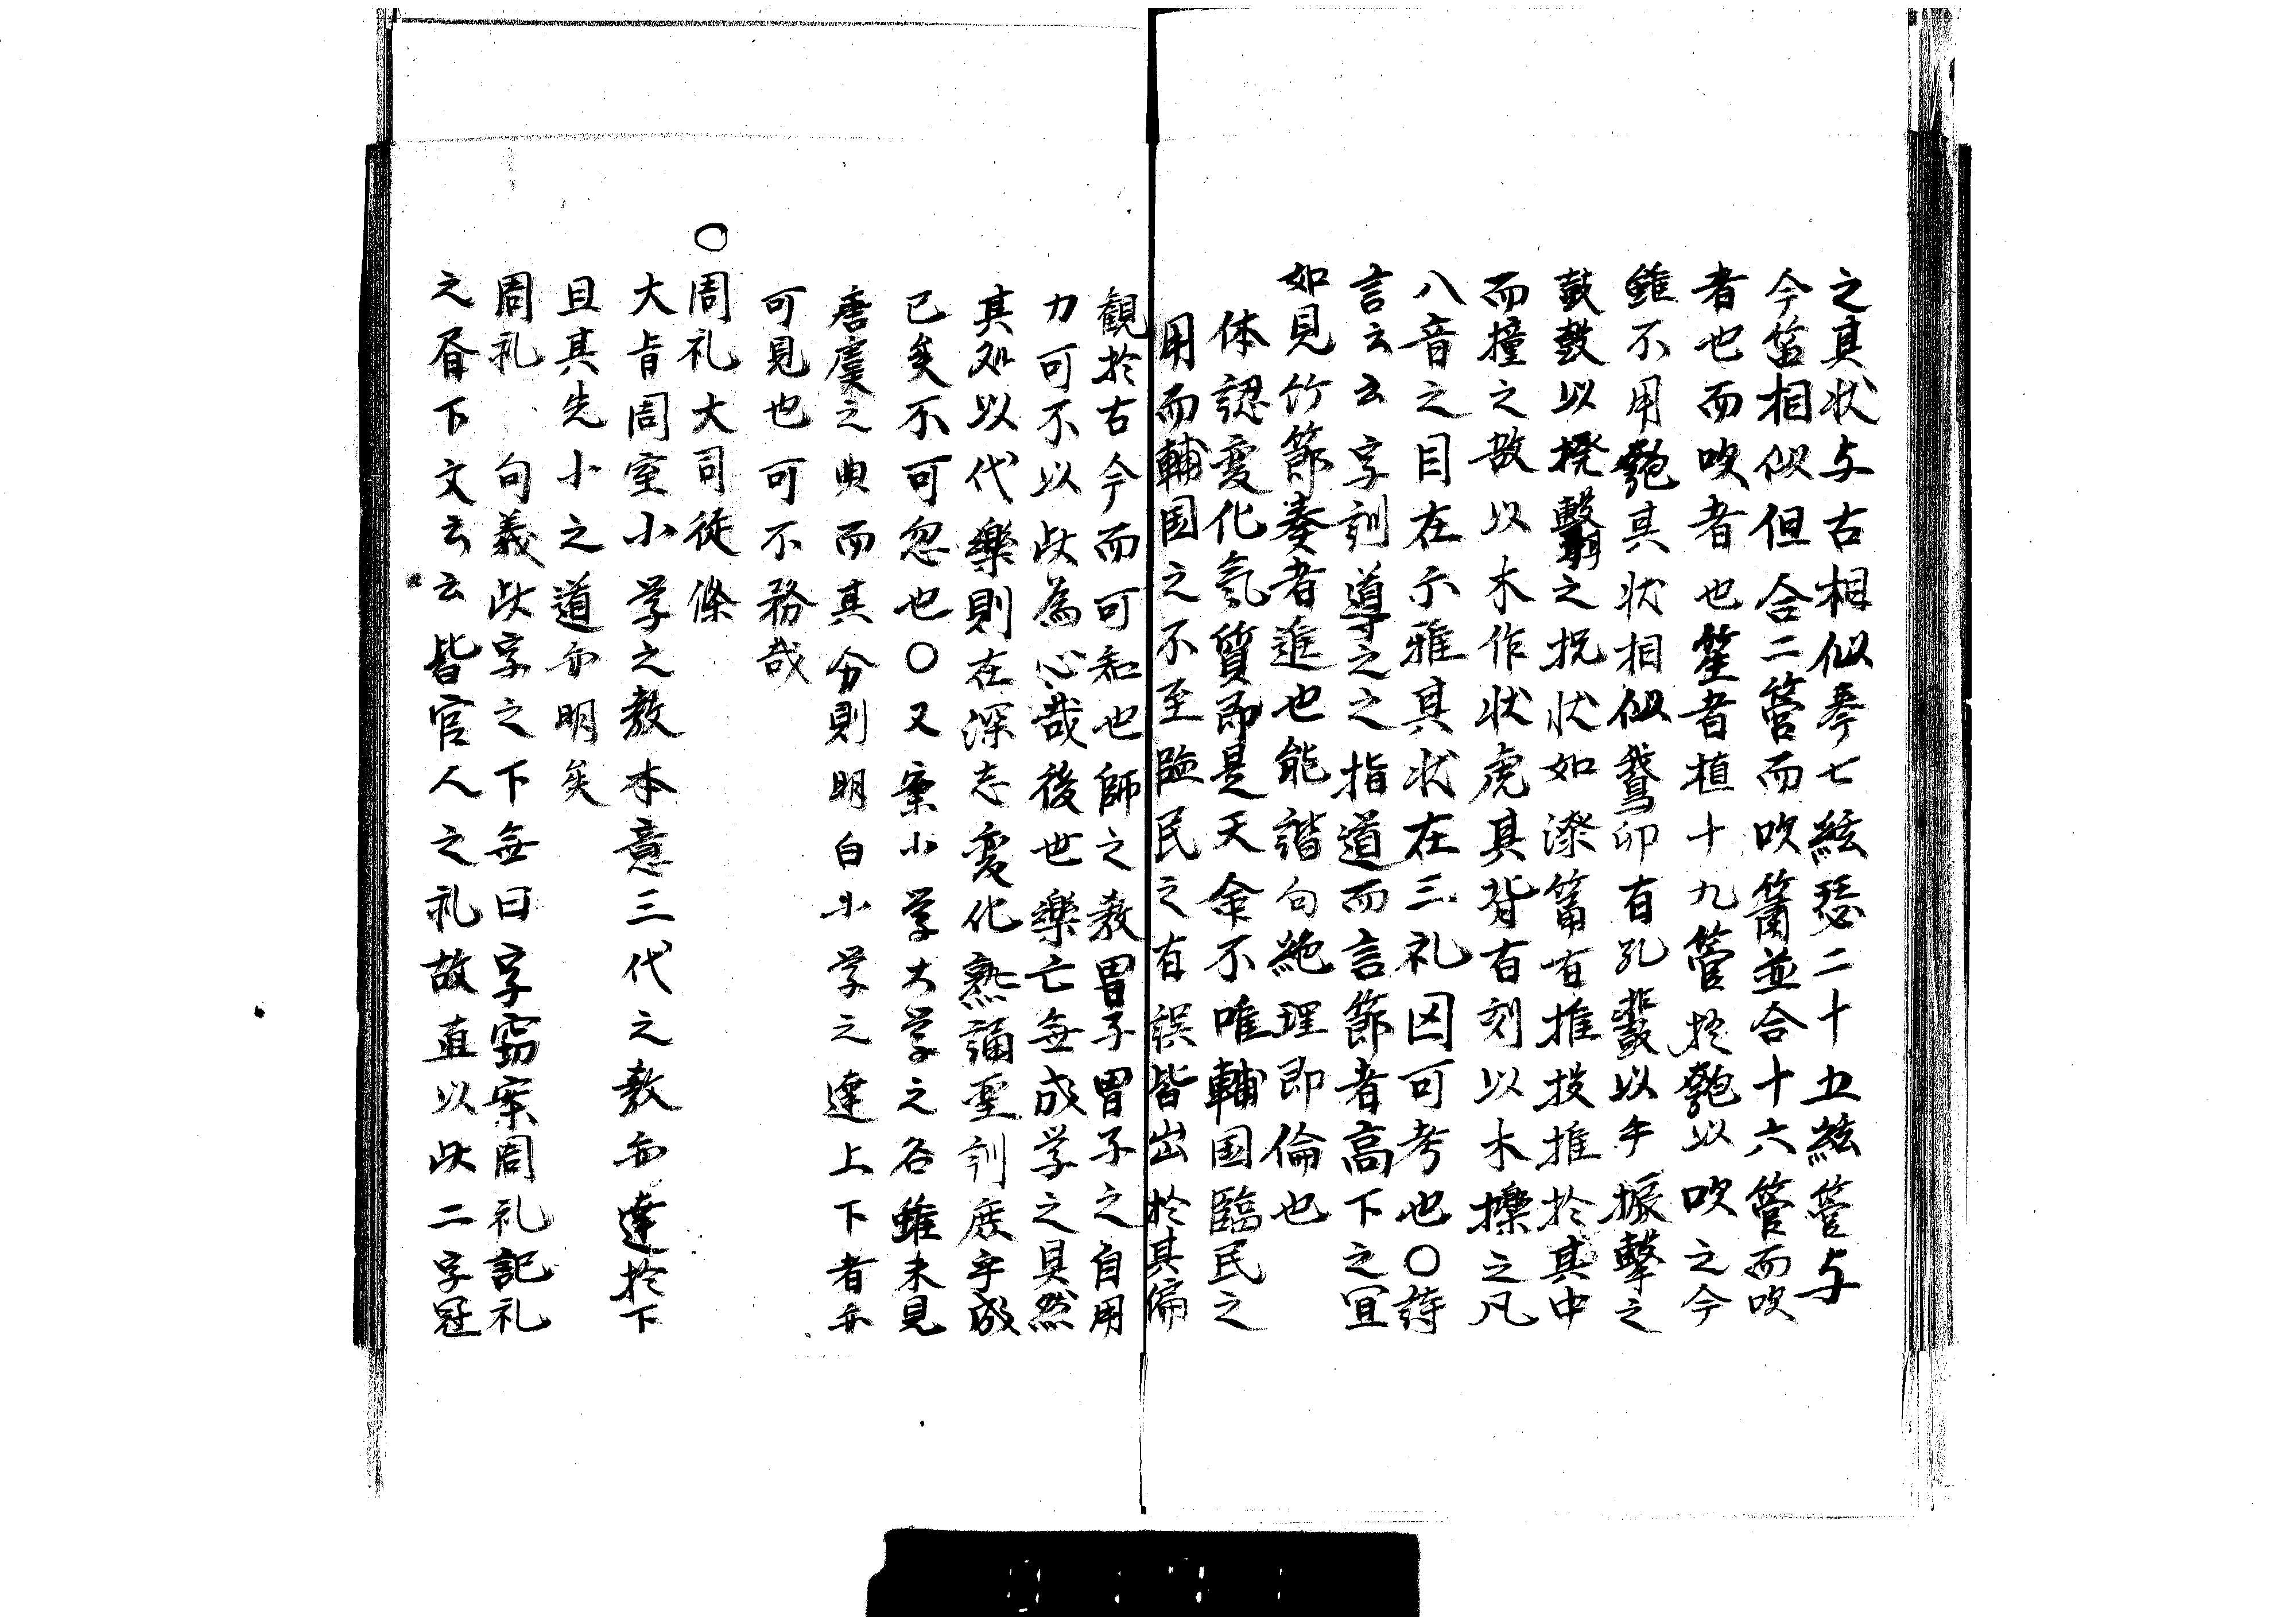 之其状与古相似琴七絃瑟二十五絃管与
今笛相似但合二管而吹簫並合十六管而吹
者也而吹者也笙者植十九管於匏以吹之今
雖不用匏其状相似鵞卵有孔鼗以手振擊之
鼓鼓以撥擊之柷状如漆筩有推投推於其中
而撞之敔以木作状虎其背有刻以木擽之凡
八音之目在尓雅其状在三礼図可考也〇詩
言云云字訓導之之指道而言節者高下之宜
如見竹節奏者進也能諧句絶理即倫也
体認変化氣質即是天命不唯輔国臨民之
用而輔国之不至臨民之有誤皆出於其偏
観於古今而可知也師之教胄子胄子之自用
力可不以此為心哉後世樂亡無成学之具然
其処以代樂則在深志変化熟誦聖訓庶乎成
已矣不可忽也〇又案小学大学之名雖未見
唐虞之典而其分則明白小学之達上下者亦
可見也可不務哉
〇周礼大司徒條
大旨周室小学之教本意三代之教亦達於下
且其先小之道亦明矣
周礼 句義此字之下無曰字竊案周礼記礼
之昏下文云云皆官人之礼故直以此二字冠